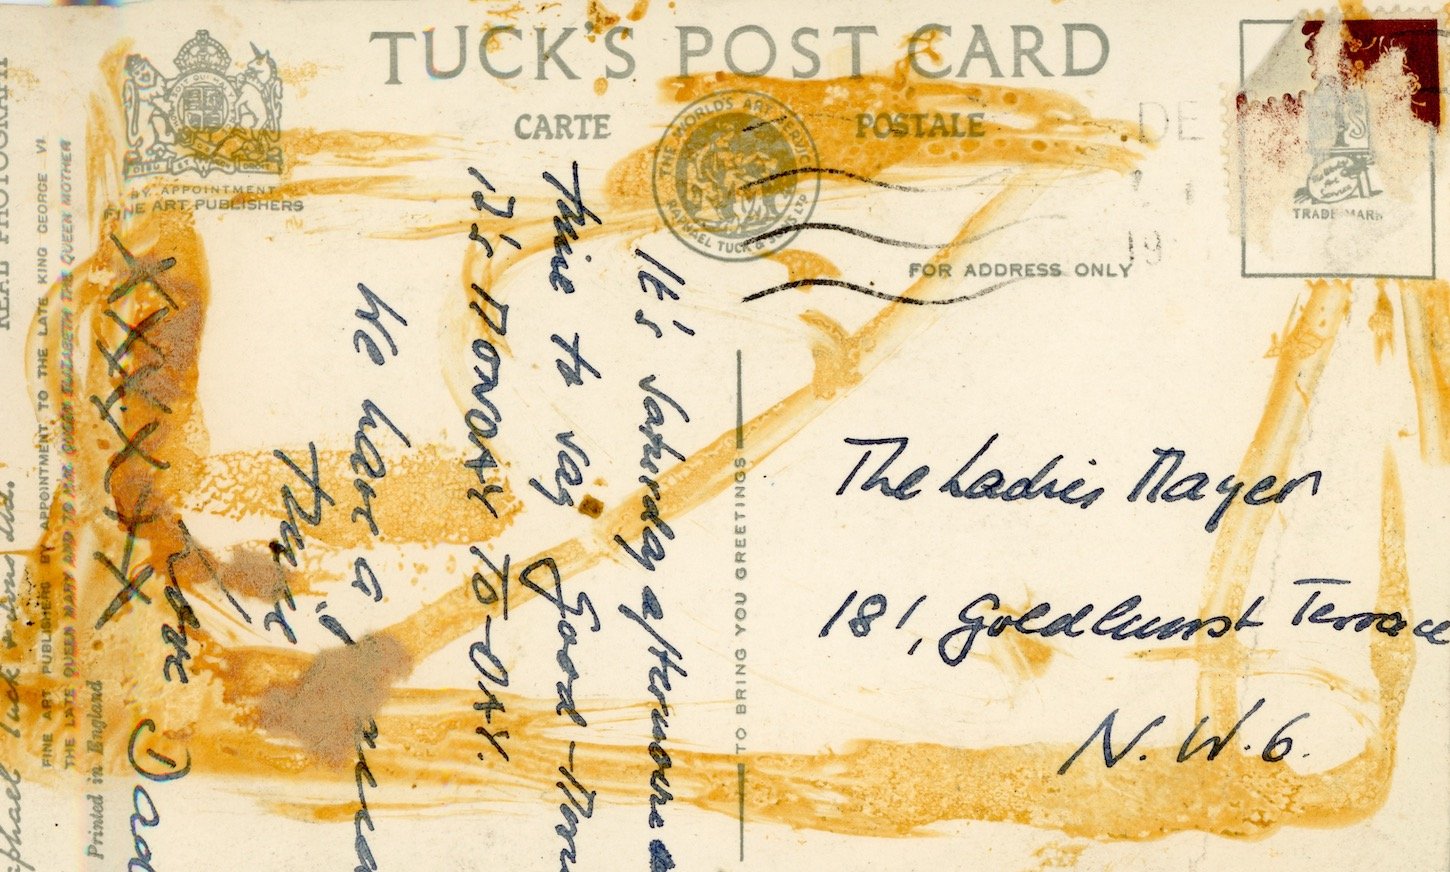 TUCK'S POST CARD
CARTE POSTALE
BY APPOINTMENT
FINE ART PUBLISHERS
THE WORLD'S ART SERVICE
RAPHAEL TUCK & SONS LTD
DE
19
TRADE MARK
FOR ADDRESS ONLY
It's Saturday afternoone
time to say Good-
it's MONDAY TO-DAY.
We have a
time
love
XXXXXX
TO BRING YOU GREETINGS
The Ladies Mayer
181, Goldhurst Terrace
N.W.6.
REAL PHOTOGRAPH
FINE ART PUBLISHERS BY APPOINTMENT TO THE LATE KING GEORGE VI.
THE LATE QUEEN MARY AND TO H.M. QUEEN ELIZABETH THE QUEEN MOTHER
Printed in England